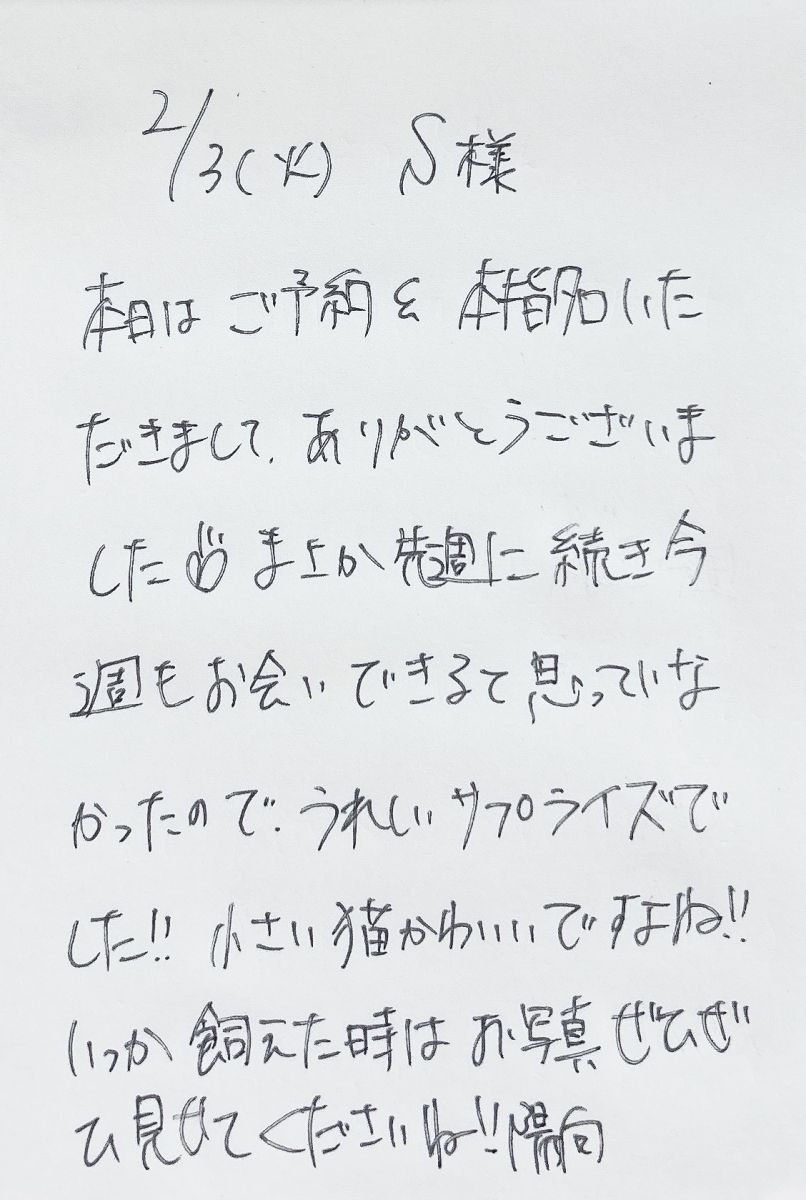 2/3(火) S様
本日はご予約を本指名いた
だきまして、ありがとうございま
した まさか先週に続き今
週もお会いできるて思っていな
かったので、うれしいサプライズで
した!! 小さい猫かわいいですよね!!
いつか飼えた時はお写真ぜひぜ
ひ見せてくださいね!! 陽向